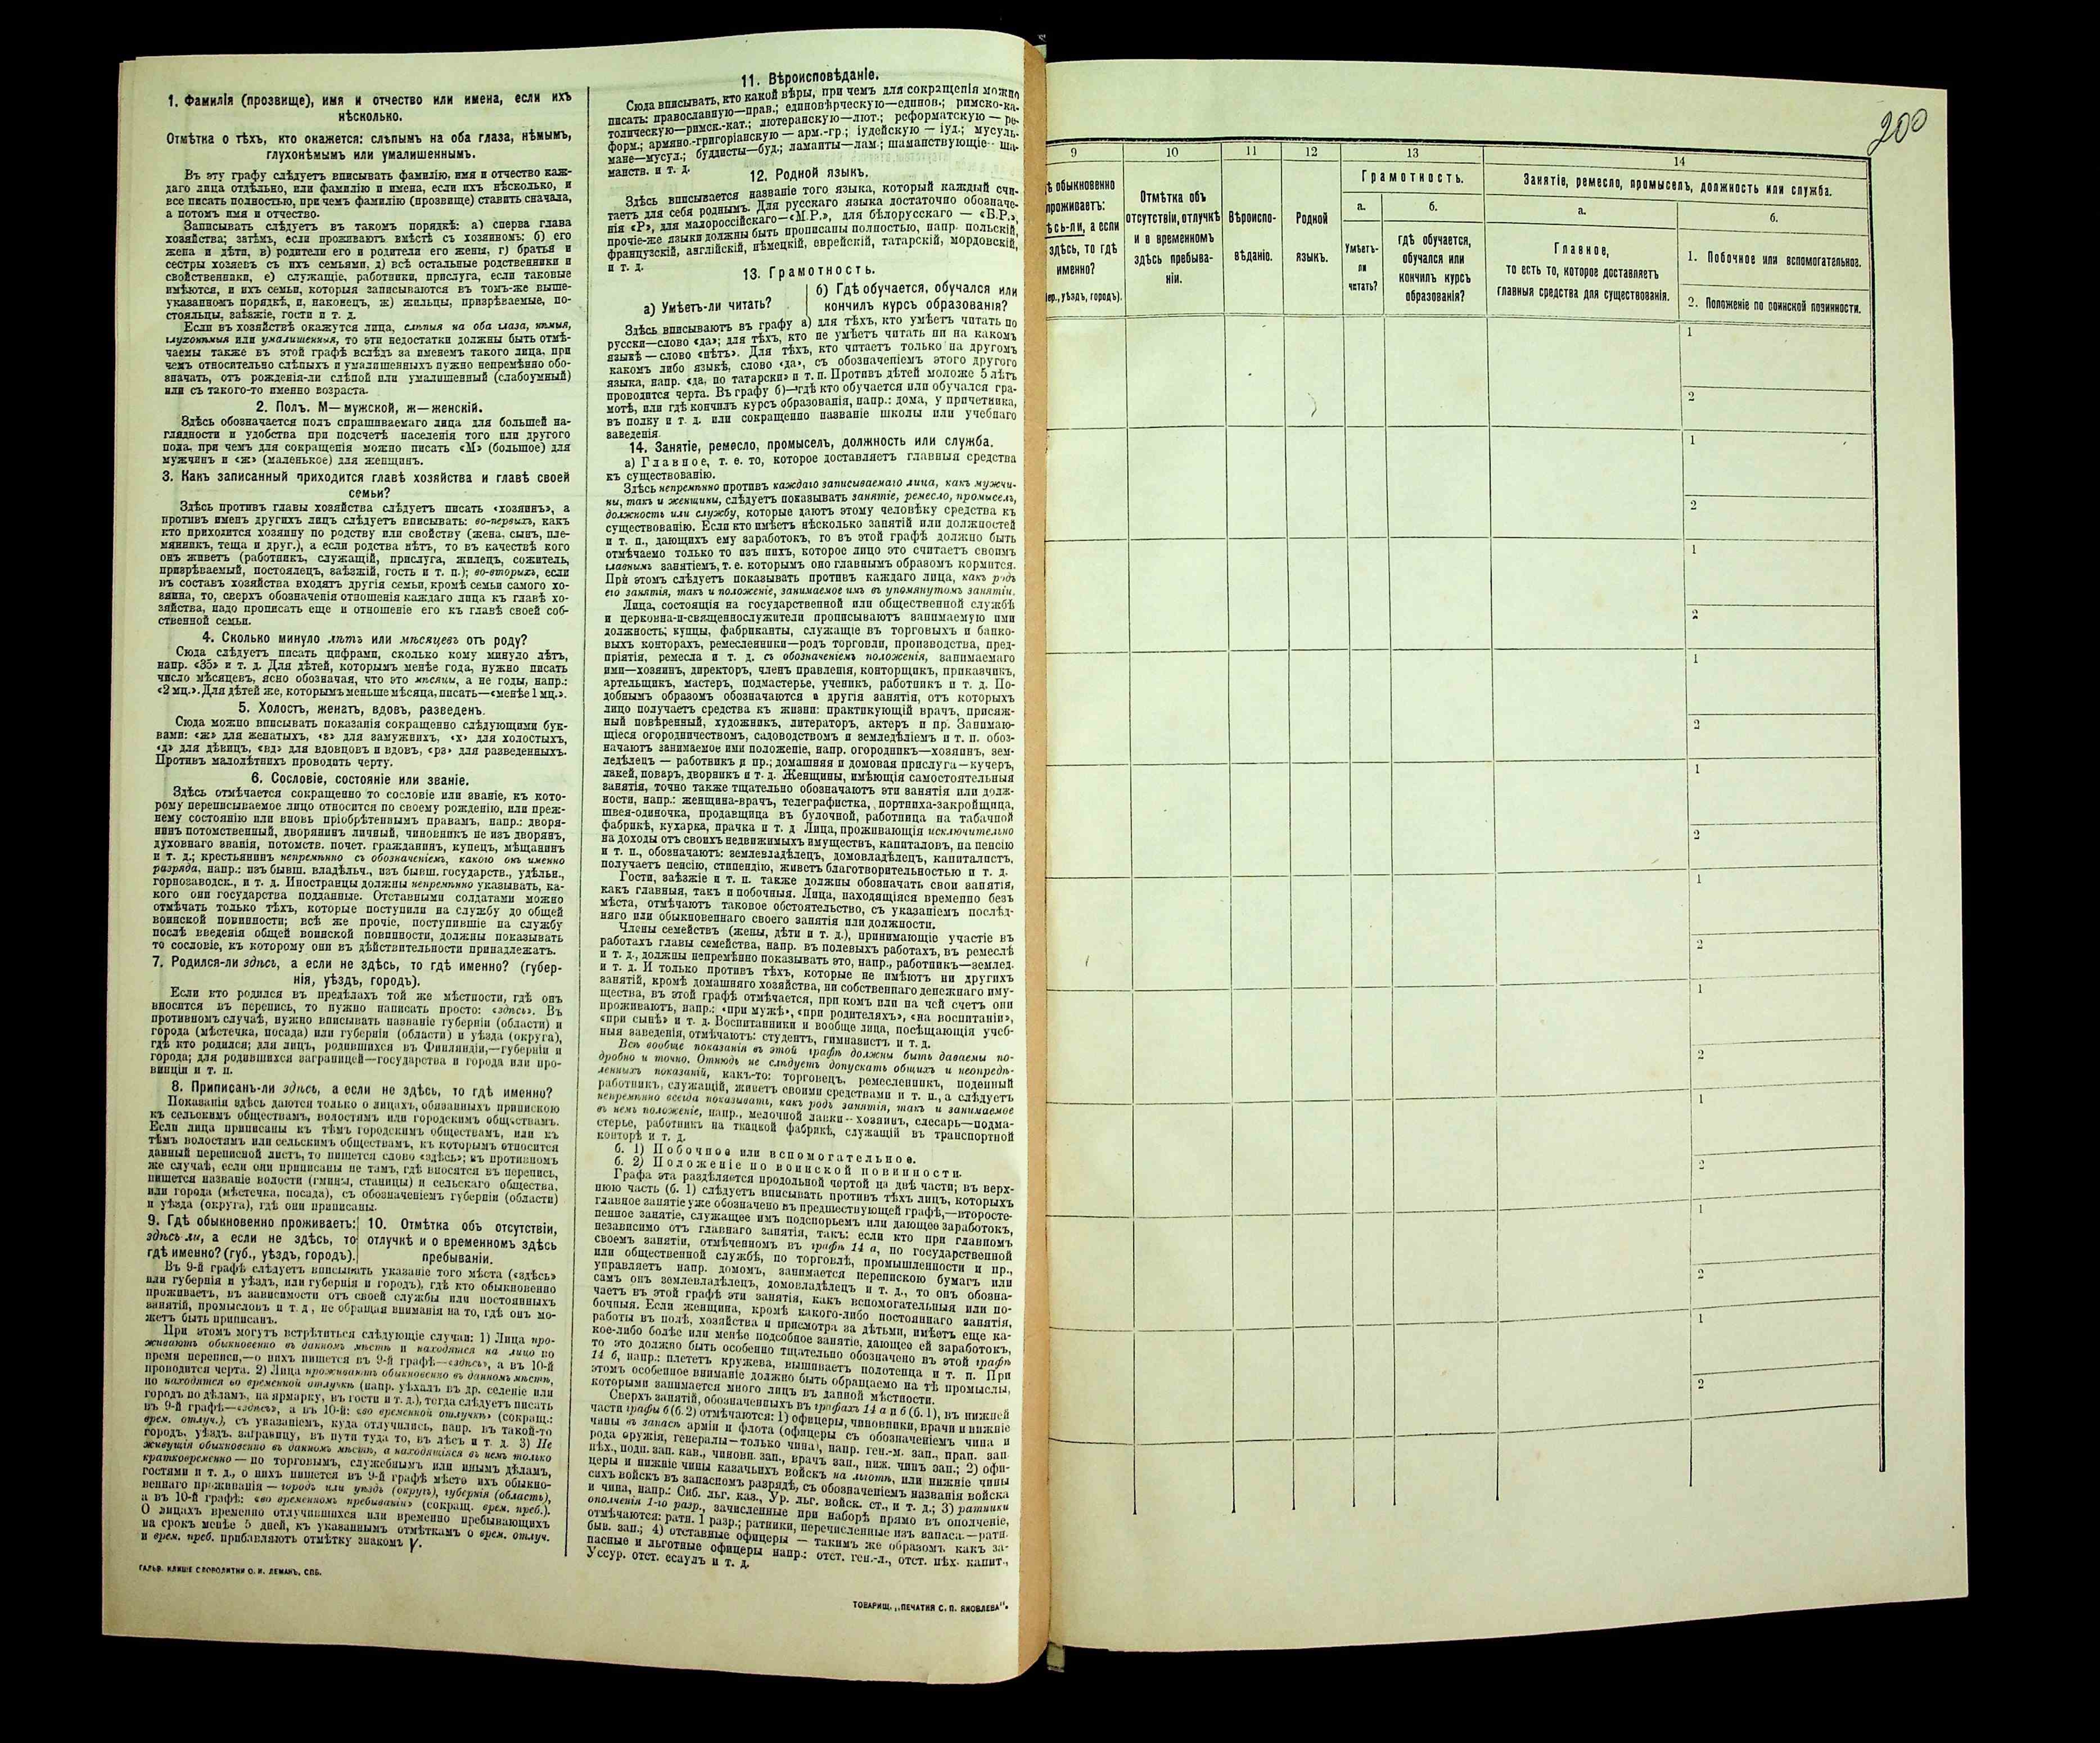 1. Фамилія (прозвище), имя и отчество или имена, если ихъ
нѣсколько.
Отмѣтка о тѣхъ, кто окажется: слѣпымъ на оба глаза, нѣмымъ,
глухонѣмымъ или умалишеннымъ.
Въ эту графу слѣдуетъ вписывать фамилію, имя и отчество каж-
даго лица отдѣльно, или фамилію и имена, если ихъ нѣсколько, и
все писать полностью, при чемъ фамилію (прозвище) ставить сначала,
а потомъ имя и отчество.
Записывать слѣдуетъ въ такомъ порядкѣ: а) сперва глава
хозяйства; затѣмъ, если проживаютъ вмѣстѣ съ хозяиномъ: б) его
жена и дѣти, в) родители его и родители его жены, г) братья и
сестры хозяевъ съ ихъ семьями, д) всѣ остальные родственники и
свойственники, е) служащіе, работники, прислуга, если таковые
имѣются, и ихъ семьи, которыя записываются въ томъ-же выше-
указанномъ порядкѣ, и, наконецъ, ж) жильцы, призрѣваемые, по-
стояльцы, заѣзжіе, гости и т. д.
Если въ хозяйствѣ окажутся лица, слѣпыя на оба глаза, нѣмыя,
глухонѣмыя или умалишенныя, то эти недостатки должны быть отмѣ-
чаемы также въ этой графѣ вслѣдъ за именемъ такого лица, при
чемъ относительно слѣпыхъ и умалишенныхъ нужно непремѣнно обо-
значать, отъ рожденія-ли слѣпой или умалишенный (слабоумный)
или съ такого-то именно возраста.
2. Полъ. М—мужской, ж—женскій.
Здѣсь обозначается полъ спрашиваемаго лица для большей на-
глядности и удобства при подсчетѣ населенія того или другого
пола, при чемъ для сокращенія можно писать «М» (большое) для
мужчинъ и «ж» (маленькое) для женщинъ.
3. Какъ записанный приходится главѣ хозяйства и главѣ своей
семьи?
Здѣсь противъ главы хозяйства слѣдуетъ писать «хозяинъ», а
противъ именъ другихъ лицъ слѣдуетъ вписывать: во-первыхъ, какъ
кто приходится хозяину по родству или свойству (жена, сынъ, пле-
мянникъ, теща и друг.), а если родства нѣтъ, то въ качествѣ кого
онъ живетъ (работникъ, служащій, прислуга, жилецъ, сожитель,
призрѣваемый, постоялецъ, заѣзжій, гость и т. п.); во-вторыхъ, если
въ составъ хозяйства входятъ другія семьи, кромѣ семьи самого хо-
зяина, то, сверхъ обозначенія отношенія каждаго лица къ главѣ хо-
зяйства, надо прописать еще и отношеніе его къ главѣ своей соб-
ственной семьи.
4. Сколько минуло лѣтъ или мѣсяцевъ отъ роду?
Сюда слѣдуетъ писать цифрами, сколько кому минуло лѣтъ,
напр. «35» и т. д. Для дѣтей, которымъ менѣе года, нужно писать
число мѣсяцевъ, ясно обозначая, что это мѣсяцы, а не годы, напр.:
«2 мц.». Для дѣтей же, которымъ меньше мѣсяца, писать—«менѣе 1 мц.».
5. Холостъ, женатъ, вдовъ, разведенъ.
Сюда можно вписывать показанія сокращенно слѣдующими бук-
вами: «ж» для женатыхъ, «з» для замужнихъ, «х» для холостыхъ,
«д» для дѣвицъ, «вд» для вдовцовъ и вдовъ, «рз» для разведенныхъ.
Противъ малолѣтнихъ проводить черту.
6. Сословіе, состояніе или званіе.
Здѣсь отмѣчается сокращенно то сословіе или званіе, къ кото-
рому переписываемое лицо относится по своему рожденію, или преж-
нему состоянію или вновь пріобрѣтеннымъ правамъ, напр.: дворя-
нинъ потомственный, дворянинъ личный, чиновникъ не изъ дворянъ,
духовнаго званія, потомств. почет. гражданинъ, купецъ, мѣщанинъ
и т. д.; крестьянинъ непремѣнно съ обозначеніемъ, какого онъ именно
разряда, напр.: изъ бывш. владѣльч., изъ бывш. государств., удѣльн.,
горнозаводск., и т. д. Иностранцы должны непремѣнно указывать, ка-
кого они государства подданные. Отставными солдатами можно
отмѣчать только тѣхъ, которые поступили на службу до общей
воинской повинности; всѣ же прочіе, поступившіе на службу
послѣ введенія общей воинской повинности, должны показывать
то сословіе, къ которому они въ дѣйствительности принадлежатъ.
7. Родился-ли здѣсь, а если не здѣсь, то гдѣ именно? (губер-
нія, уѣздъ, городъ).
Если кто родился въ предѣлахъ той же мѣстности, гдѣ онъ
вносится въ перепись, то нужно написать просто: «здѣсь». Въ
противномъ случаѣ, нужно вписывать названіе губерніи (области) и
города (мѣстечка, посада) или губерніи (области) и уѣзда (округа),
гдѣ кто родился; для лицъ, родившихся въ Финляндіи,—губерніи и
города; для родившихся заграницей—государства и города или про-
винціи и т. п.
8. Приписанъ-ли здѣсь, а если не здѣсь, то гдѣ именно?
Показанія здѣсь даются только о лицахъ, обязанныхъ припискою
къ сельскимъ обществамъ, волостямъ или городскимъ обществамъ.
Если лица приписаны къ тѣмъ городскимъ обществамъ, или къ
тѣмъ волостямъ или сельскимъ обществамъ, къ которымъ относится
данный переписной листъ, то пишется слово «здѣсь»; въ противномъ
же случаѣ, если они приписаны не тамъ, гдѣ вносятся въ перепись,
пишется названіе волости (гмины, станицы) и сельскаго общества,
или города (мѣстечка, посада), съ обозначеніемъ губерніи (области)
и уѣзда (округа), гдѣ они приписаны.
9. Гдѣ обыкновенно проживаетъ:
здѣсь-ли, а если не здѣсь, то
гдѣ именно? (губ., уѣздъ, городъ).
10. Отмѣтка объ отсутствіи,
отлучкѣ и о временномъ здѣсь
пребываніи.
Въ 9-й графѣ слѣдуетъ вписывать указаніе того мѣста («здѣсь»
или губернія и уѣздъ, или губернія и городъ), гдѣ кто обыкновенно
проживаетъ, въ зависимости отъ своей службы или постоянныхъ
занятій, промысловъ и т. д., не обращая вниманія на то, гдѣ онъ мо-
жетъ быть приписанъ.
При этомъ могутъ встрѣтиться слѣдующіе случаи: 1) Лица про-
живаютъ обыкновенно въ данномъ мѣстѣ и находятся на лицо во
время переписи,—о нихъ пишется въ 9-й графѣ—«здѣсь», а въ 10-й
проводится черта. 2) Лица проживаютъ обыкновенно въ данномъ мѣстѣ,
но находятся во временной отлучкѣ (напр. уѣхалъ въ др. селеніе или
городъ по дѣламъ, на ярмарку, въ гости и т. д.), тогда слѣдуетъ писать
въ 9-й графѣ—«здѣсь», а въ 10-й: «во временной отлучкѣ» (сокращ.:
врем. отлуч.), съ указаніемъ, куда отлучились, напр. въ такой-то
городъ, уѣздъ, заграницу, въ пути туда то, въ лѣсъ и т. д. 3) Не
живущія обыкновенно въ данномъ мѣстѣ, а находящіяся въ немъ только
кратковременно — по торговымъ, служебнымъ или инымъ дѣламъ,
гостями и т. д., о нихъ пишется въ 9-й графѣ мѣсто ихъ обыкно-
веннаго проживанія — городъ или уѣздъ (округъ), губернія (область),
а въ 10-й графѣ: «во временномъ пребываніи» (сокращ. врем. преб.).
О лицахъ временно отлучившихся или временно пребывающихъ
на срокъ менѣе 5 дней, къ указаннымъ отмѣткамъ о врем. отлуч.
и врем. преб. прибавляютъ отмѣтку знакомъ V.
ГАЛЬВ. КЛИШЕ СЛОВОЛИТНИ О. И. ЛЕМАНЪ, СПБ.
11. Вѣроисповѣданіе.
Сюда вписывать, кто какой вѣры, при чемъ для сокращенія можно
писать: православную—прав.; единовѣрческую—единов.; римско-ка-
толическую—римск.-кат.; лютеранскую—лют.; реформатскую — ре-
форм.; армяно-григоріанскую — арм.-гр.; іудейскую — іуд.; мусуль-
мане—мусул.; буддисты—буд.; ламаиты—лам.; шаманствующіе—ша-
манств. и т. д.
12. Родной языкъ.
Здѣсь вписывается названіе того языка, который каждый счи-
таетъ для себя роднымъ. Для русскаго языка достаточно обозначе-
нія «Р», для малороссійскаго—«М.Р.», для бѣлорусскаго — «Б.Р.»,
прочіе-же языки должны быть прописаны полностью, напр. польскій,
французскій, англійскій, нѣмецкій, еврейскій, татарскій, мордовскій,
и т. д.
13. Грамотность.
а) Умѣетъ-ли читать?
б) Гдѣ обучается, обучался или
кончилъ курсъ образованія?
Здѣсь вписываютъ въ графу а) для тѣхъ, кто умѣетъ читать по
русски—слово «да»; для тѣхъ, кто не умѣетъ читать ни на какомъ
языкѣ — слово «нѣтъ». Для тѣхъ, кто читаетъ только на другомъ
какомъ либо языкѣ, слово «да», съ обозначеніемъ этого другого
языка, напр. «да, по татарски» и т. п. Противъ дѣтей моложе 5 лѣтъ
проводится черта. Въ графу б)—гдѣ кто обучается или обучался гра-
мотѣ, или гдѣ кончилъ курсъ образованія, напр.: дома, у причетника,
въ полку и т. д. или сокращенно названіе школы или учебнаго
заведенія.
14. Занятіе, ремесло, промыселъ, должность или служба.
а) Главное, т. е. то, которое доставляетъ главныя средства
къ существованію.
Здѣсь непремѣнно противъ каждаго записываемаго лица, какъ мужчи-
ны, такъ и женщины, слѣдуетъ показывать занятіе, ремесло, промыселъ,
должность или службу, которые даютъ этому человѣку средства къ
существованію. Если кто имѣетъ нѣсколько занятій или должностей
и т. п., дающихъ ему заработокъ, то въ этой графѣ должно быть
отмѣчаемо только то изъ нихъ, которое лицо это считаетъ своимъ
главнымъ занятіемъ, т. е. которымъ оно главнымъ образомъ кормится.
При этомъ слѣдуетъ показывать противъ каждаго лица, какъ родъ
его занятія, такъ и положеніе, занимаемое имъ въ упомянутомъ занятіи.
Лица, состоящія на государственной или общественной службѣ
и церковно-и-священнослужители прописываютъ занимаемую ими
должность; купцы, фабриканты, служащіе въ торговыхъ и банко-
выхъ конторахъ, ремесленники—родъ торговли, производства, пред-
пріятія, ремесла и т. д. съ обозначеніемъ положенія, занимаемаго
ими—хозяинъ, директоръ, членъ правленія, конторщикъ, приказчикъ,
артельщикъ, мастеръ, подмастерье, ученикъ, работникъ и т. д. По-
добнымъ образомъ обозначаются и другія занятія, отъ которыхъ
лицо получаетъ средства къ жизни: практикующій врачъ, присяж-
ный повѣренный, художникъ, литераторъ, актеръ и пр. Занимаю-
щіеся огородничествомъ, садоводствомъ и земледѣліемъ и т. п. обоз-
начаютъ занимаемое ими положеніе, напр. огородникъ—хозяинъ, зем-
ледѣлецъ — работникъ и пр.; домашняя и домовая прислуга—кучеръ,
лакей, поваръ, дворникъ и т. д. Женщины, имѣющія самостоятельныя
занятія, точно также тщательно обозначаютъ эти занятія или долж-
ности, напр.: женщина-врачъ, телеграфистка, портниха-закройщица,
швея-одиночка, продавщица въ булочной, работница на табачной
фабрикѣ, кухарка, прачка и т. д. Лица, проживающія исключительно
на доходы отъ своихъ недвижимыхъ имуществъ, капиталовъ, на пенсію
и т. п., обозначаютъ: землевладѣлецъ, домовладѣлецъ, капиталистъ,
получаетъ пенсію, стипендію, живетъ благотворительностью и т. д.
Гости, заѣзжіе и т. п. также должны обозначать свои занятія,
какъ главныя, такъ и побочныя. Лица, находящіяся временно безъ
мѣста, отмѣчаютъ таковое обстоятельство, съ указаніемъ послѣд-
няго или обыкновеннаго своего занятія или должности.
Члены семействъ (жены, дѣти и т. д.), принимающіе участіе въ
работахъ главы семейства, напр. въ полевыхъ работахъ, въ ремеслѣ
и т. д., должны непремѣнно показывать это, напр., работникъ—землед.
и т. д. И только противъ тѣхъ, которые не имѣютъ ни другихъ
занятій, кромѣ домашняго хозяйства, ни собственнаго денежнаго иму-
щества, въ этой графѣ отмѣчается, при комъ или на чей счетъ они
проживаютъ, напр.: «при мужѣ», «при родителяхъ», «на воспитаніи»,
«при сынѣ» и т. д. Воспитанники и вообще лица, посѣщающія учеб-
ныя заведенія, отмѣчаютъ: студентъ, гимназистъ и т. д.
Всѣ вообще показанія въ этой графѣ должны быть даваемы по-
дробно и точно. Отнюдь не слѣдуетъ допускать общихъ и неопредѣ-
ленныхъ показаній, какъ-то: торговецъ, ремесленникъ, поденный
работникъ, служащій, живетъ своими средствами и т. п., а слѣдуетъ
непремѣнно всегда показывать, какъ родъ занятія, такъ и занимаемое
въ немъ положеніе, напр., мелочной лавки—хозяинъ, слесарь—подма-
стерье, работникъ на ткацкой фабрикѣ, служащій въ транспортной
конторѣ и т. д.
б. 1) Побочное или вспомогательное.
б. 2) Положеніе по воинской повинности.
Графа эта раздѣляется продольной чертой на двѣ части; въ верх-
нюю часть (б. 1) слѣдуетъ вписывать противъ тѣхъ лицъ, которыхъ
главное занятіе уже обозначено въ предшествующей графѣ,—второсте-
пенное занятіе, служащее имъ подспорьемъ или дающее заработокъ,
независимо отъ главнаго занятія, такъ: если кто при главномъ
своемъ занятіи, отмѣченномъ въ графѣ 14 а, по государственной
или общественной службѣ, по торговлѣ, промышленности и пр.,
управляетъ напр. домомъ, занимается перепискою бумагъ или
самъ онъ землевладѣлецъ, домовладѣлецъ и т. д., то онъ обозна-
чаетъ въ этой графѣ эти занятія, какъ вспомогательныя или по-
бочныя. Если женщина, кромѣ какого-либо постояннаго занятія,
работы въ полѣ, хозяйства и присмотра за дѣтьми, имѣетъ еще ка-
кое-либо болѣе или менѣе подсобное занятіе, дающее ей заработокъ,
то это должно быть особенно тщательно обозначено въ этой графѣ
14 б, напр.: плететъ кружева, вышиваетъ полотенца и т. п. При
этомъ особенное вниманіе должно быть обращаемо на тѣ промыслы,
которыми занимается много лицъ въ данной мѣстности.
Сверхъ занятій, обозначенныхъ въ графахъ 14 а и б (б. 1), въ нижней
части графы б (б. 2) отмѣчаются: 1) офицеры, чиновники, врачи и нижніе
чины въ запасѣ арміи и флота (офицеры съ обозначеніемъ чина и
рода оружія, генералы—только чина), напр. ген.-м. зап., прап. зап.
пѣх., подп. зап. кав., чиновн. зап., врачъ зап., ниж. чинъ зап.; 2) офи-
церы и нижніе чины казачьихъ войскъ на льготѣ, или нижніе чины
сихъ войскъ въ запасномъ разрядѣ, съ обозначеніемъ названія войска
и чина, напр.: Сиб. льг. каз., Ур. льг. войск. ст., и т. д.; 3) ратники
ополченія 1-го разр., зачисленные при наборѣ прямо въ ополченіе,
отмѣчаются: ратн. 1 разр.; ратники, перечисленные изъ запаса.—ратн.
быв. зап.; 4) отставные офицеры — такимъ же образомъ, какъ за-
пасные и льготные офицеры напр.: отст. ген.-л., отст. пѣх. капит.,
Уссур. отст. есаулъ и т. д.
ТОВАРИЩ. „ПЕЧАТНЯ С. П. ЯКОВЛЕВА“.
200
9
10
11
12
13
14
ѣ обыкновенно
проживаетъ:
ѣсь-ли, а если
здѣсь, то гдѣ
именно?
ер., уѣздъ, городъ).
Отмѣтка объ
отсутствіи, отлучкѣ
и о временномъ
здѣсь пребыва-
ніи.
Вѣроиспо-
вѣданіе.
Родной
языкъ.
Грамотность.
а.
Умѣетъ-
ли
читать?
б.
гдѣ обучается,
обучался или
кончилъ курсъ
образованія?
Занятіе, ремесло, промыселъ, должность или служба.
а.
Главное,
то есть то, которое доставляетъ
главныя средства для существованія.
б.
1. Побочное или вспомогательное.
2. Положеніе по воинской повинности.
1
2
1
2
1
2
1
2
1
2
1
2
1
2
1
2
1
2
1
2